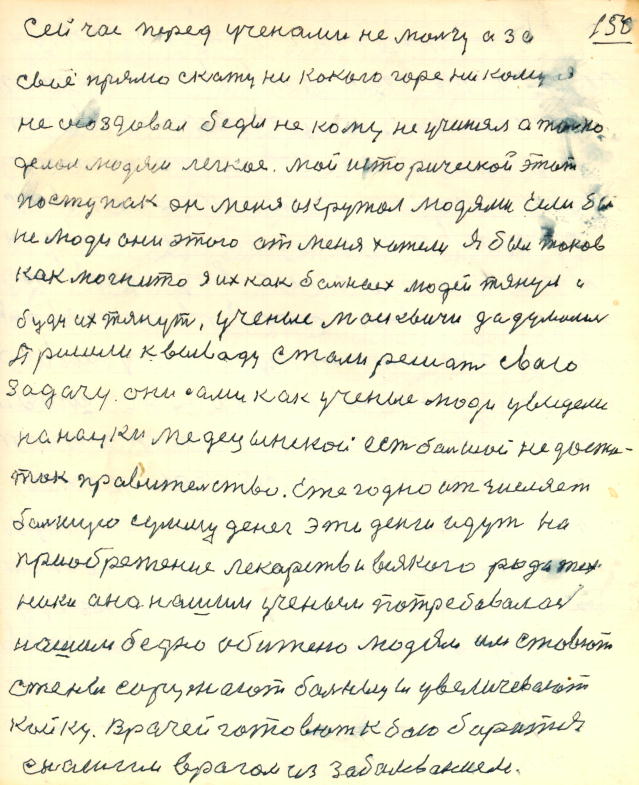 Сей час перед учеными не молчу а за 150
своё прямо скажу ни какого горе ни кому я
не создовал беды не кому не учинял а только
делал людям легкое. мой исторический этот
поступок он меня окружал людями Если бы
не люди они этого от меня хотели Я был таков
как могнито я их как больных людей тянул и
буду их тянут, ученые москвичи додумались
Пришли к выводу стали решат свою
задачу. они сами как ученые люди увидели
на науки медецынской ест большой недоста-
ток правительство. Ежегодно отчисляет
большую сумму денег эти денги идут на
приобретение лекарств и всякого рода тех-
ники она нашим ученым потребовалас
нашим бедно обижено людям им ставют
стены соружают больницы увеличевают
койку. Врачей готовют к бою боротся
сналигим врагом из заболеванием.